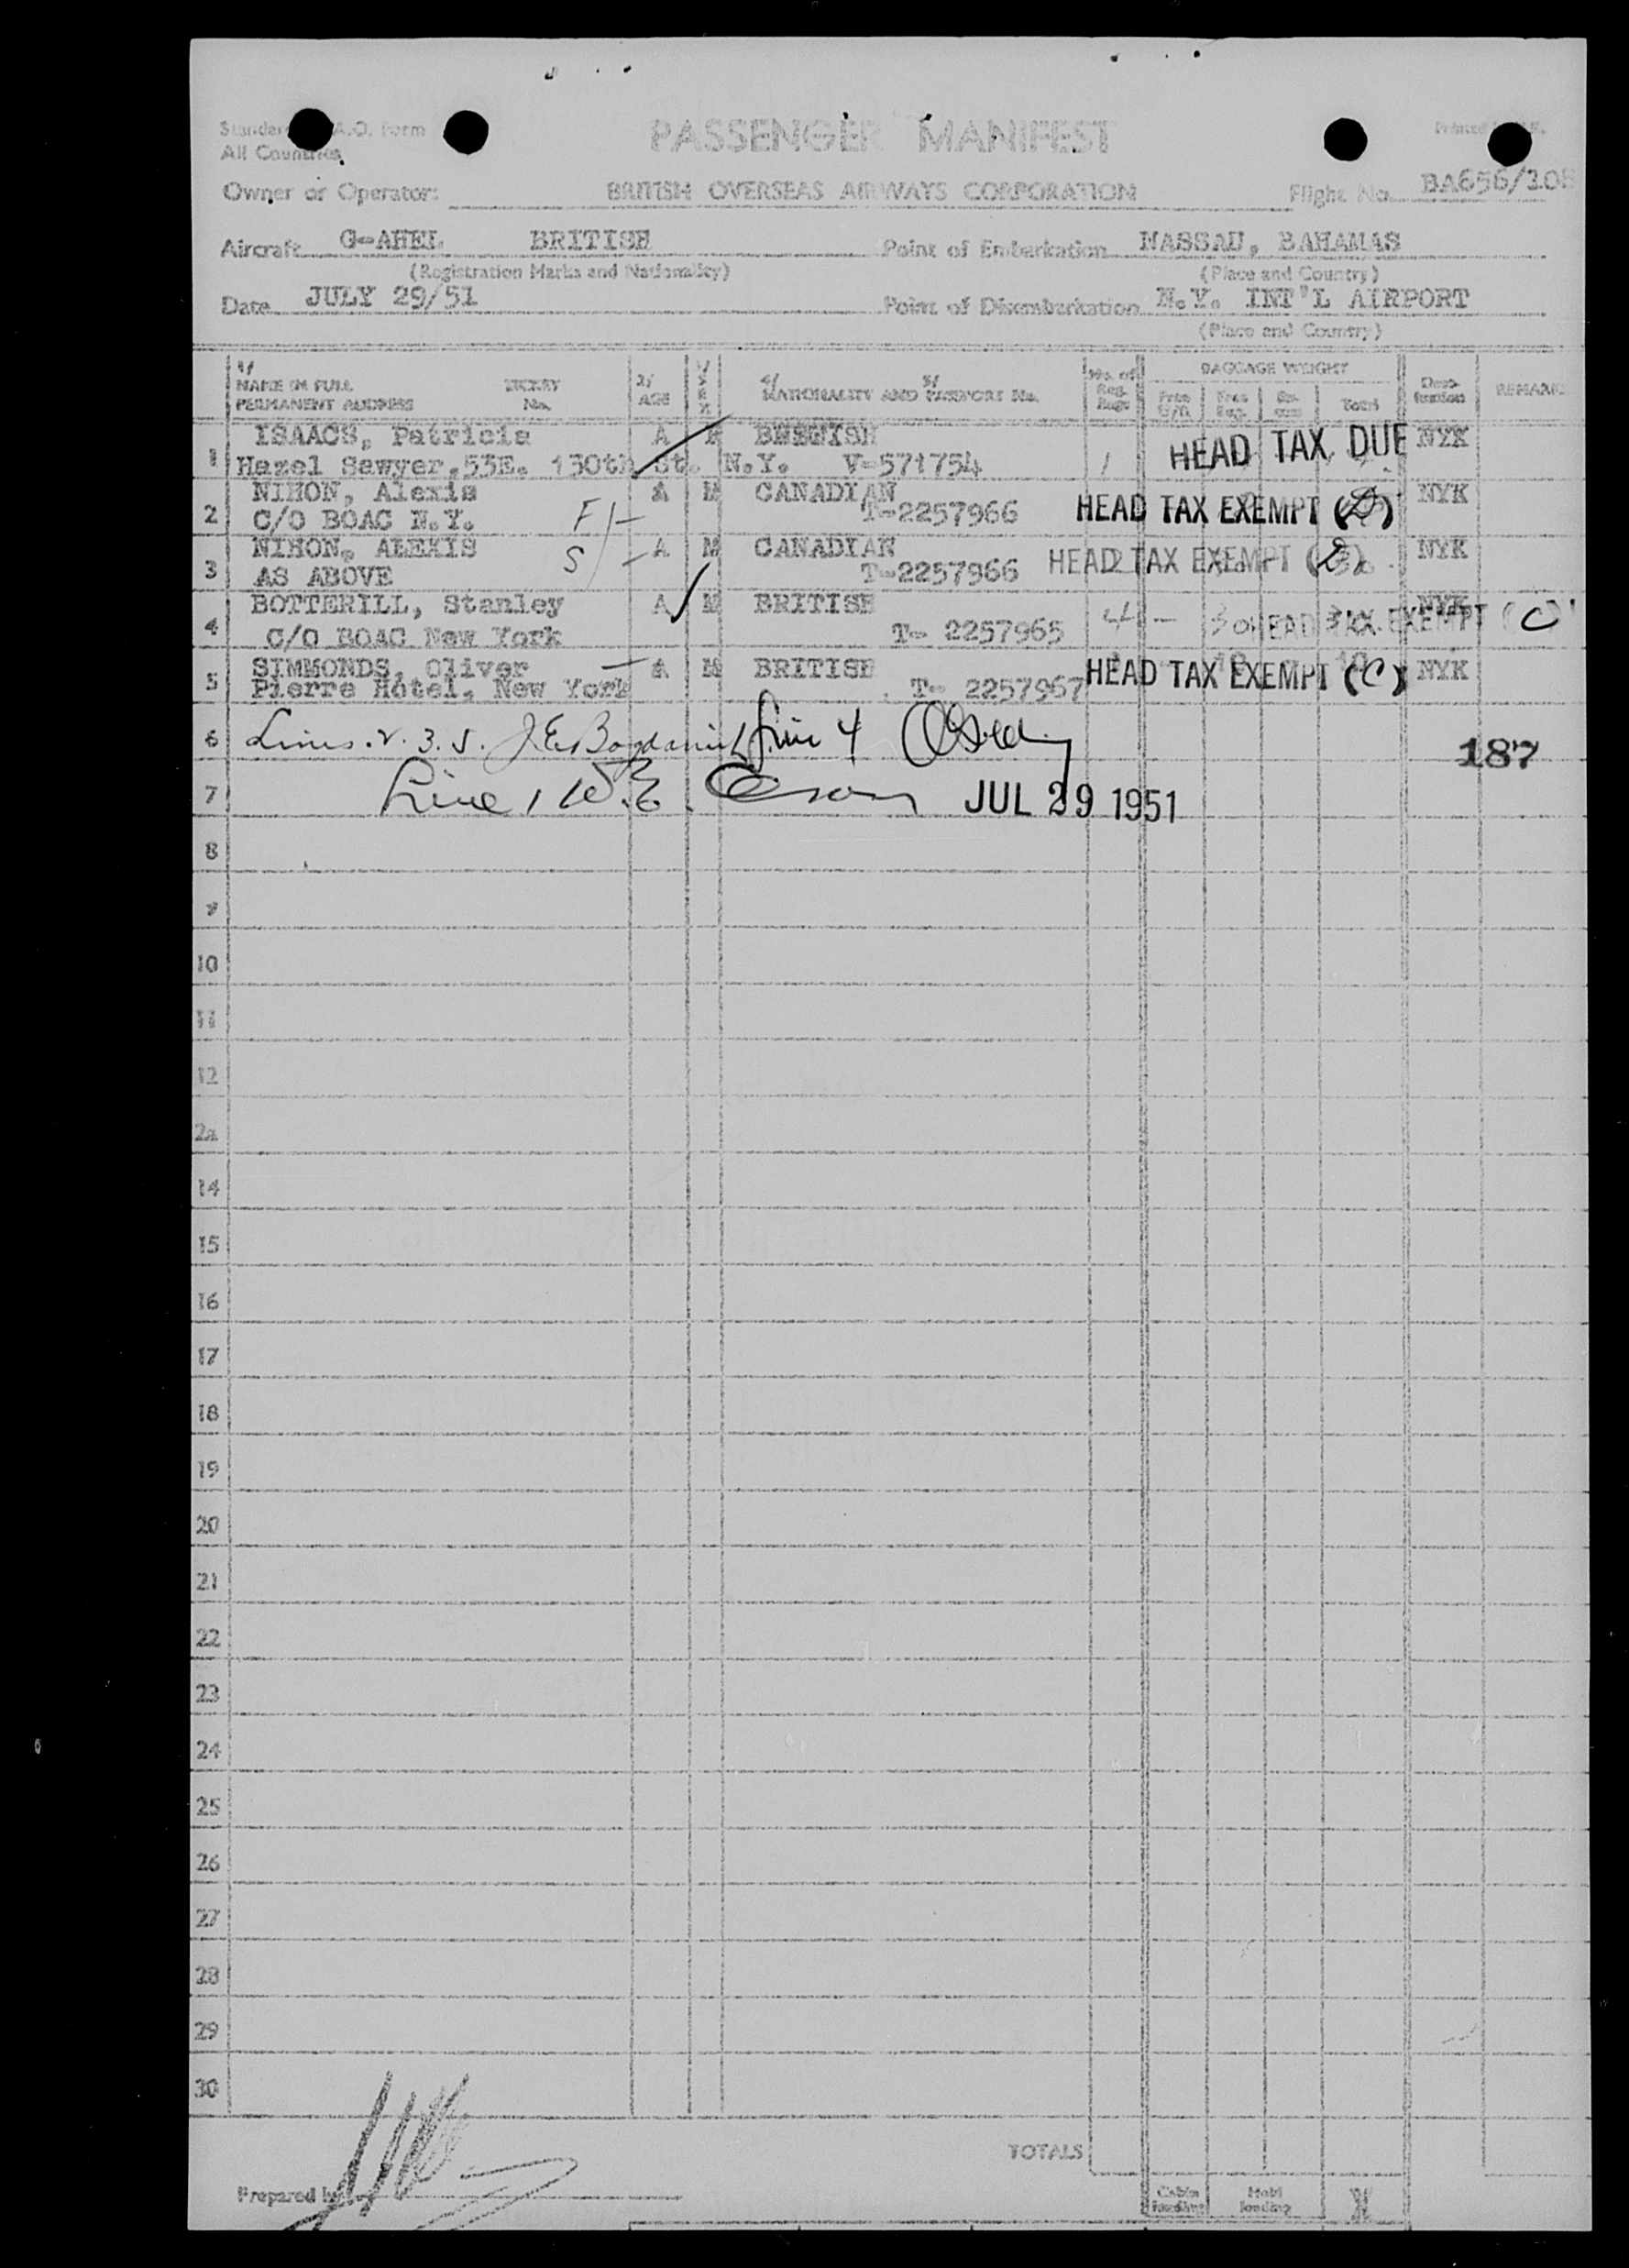 Standard I.C.A.O. Form
All Countries
PASSENGER MANIFEST
Printed
Owner or Operator: BRITISH OVERSEAS AIRWAYS CORPORATION Flight No. BA656/10
Aircraft G-AHEL BRITISH Point of Embarkation NASSAU, BAHAMAS
(Registration Marks and Nationality) (Place and Country)
Date JULY 29/51 Point of Disembarkation N.Y. INT'L AIRPORT
(Place and Country)
NAME IN FULL TICKET 2/ SEX 4/ 5/ No. of BAGGAGE WEIGHT Desti- REMARKS
PERMANENT ADDRESS No. AGE NATIONALITY AND PASSPORT No. Reg. Bags Total nation
1 ISAACS, Patricia A BRITISH HEAD TAX DUE NYK
Hazel Sawyer.53E. 130th St. N.Y. V-571754 1
2 NIHON, Alexis A M CANADIAN NYK
C/O BOAC N.Y. F T-2257966 HEAD TAX EXEMPT (D)
3 NIHON, ALEXIS S A M CANADIAN NYK
AS ABOVE T-2257966 HEAD TAX EXEMPT (D)
4 BOTTERILL, Stanley A M BRITISH NYK
C/O BOAC New York T- 2257965 4 - HEAD TAX EXEMPT (C)
5 SIMMONDS, Oliver A M BRITISH HEAD TAX EXEMPT (C) NYK
Pierre Hotel, New York T- 2257967
6 Lines. 2. 3. 5. Line 4 187
7 Line 1 W.E. JUL 29 1951
8
9
10
11
12
12a
14
15
16
17
18
19
20
21
22
23
24
25
26
27
28
29
30
TOTALS
Prepared by Cabin loading Hold loading